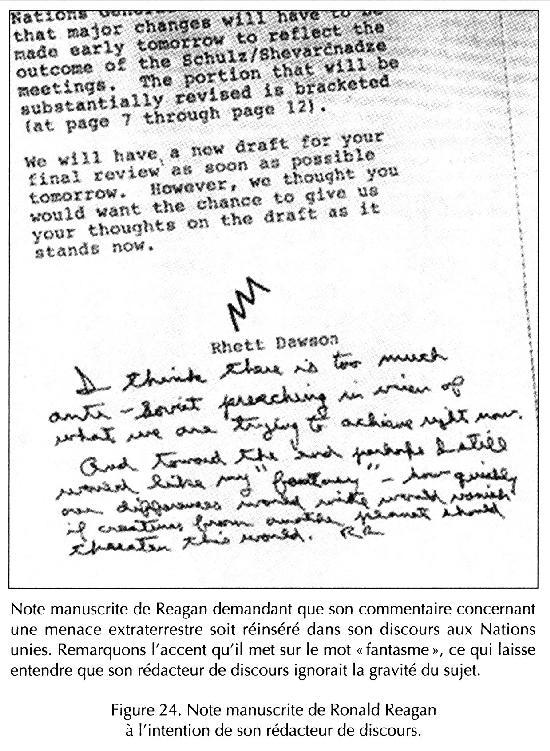 Nations General
that major changes will have to be
made early tomorrow to reflect the
outcome of the Schulz/Shevardnadze
meetings. The portion that will be
substantially revised is bracketed
(at page 7 through page 12).
We will have a new draft for your
final review as soon as possible
tomorrow. However, we thought you
would want the chance to give us
your thoughts on the draft as it
stands now.
Rhett Dawson
I think there is too much
anti-Soviet preaching in view of
what we are trying to achieve right now.
And toward the end perhaps I still
would like my "fantasy" – how quickly
our differences world wide would vanish
if creatures from another planet should
threaten this world. RR
Note manuscrite de Reagan demandant que son commentaire concernant
une menace extraterrestre soit réinséré dans son discours aux Nations
unies. Remarquons l'accent qu'il met sur le mot « fantasme », ce qui laisse
entendre que son rédacteur de discours ignorait la gravité du sujet.
Figure 24. Note manuscrite de Ronald Reagan
à l'intention de son rédacteur de discours.